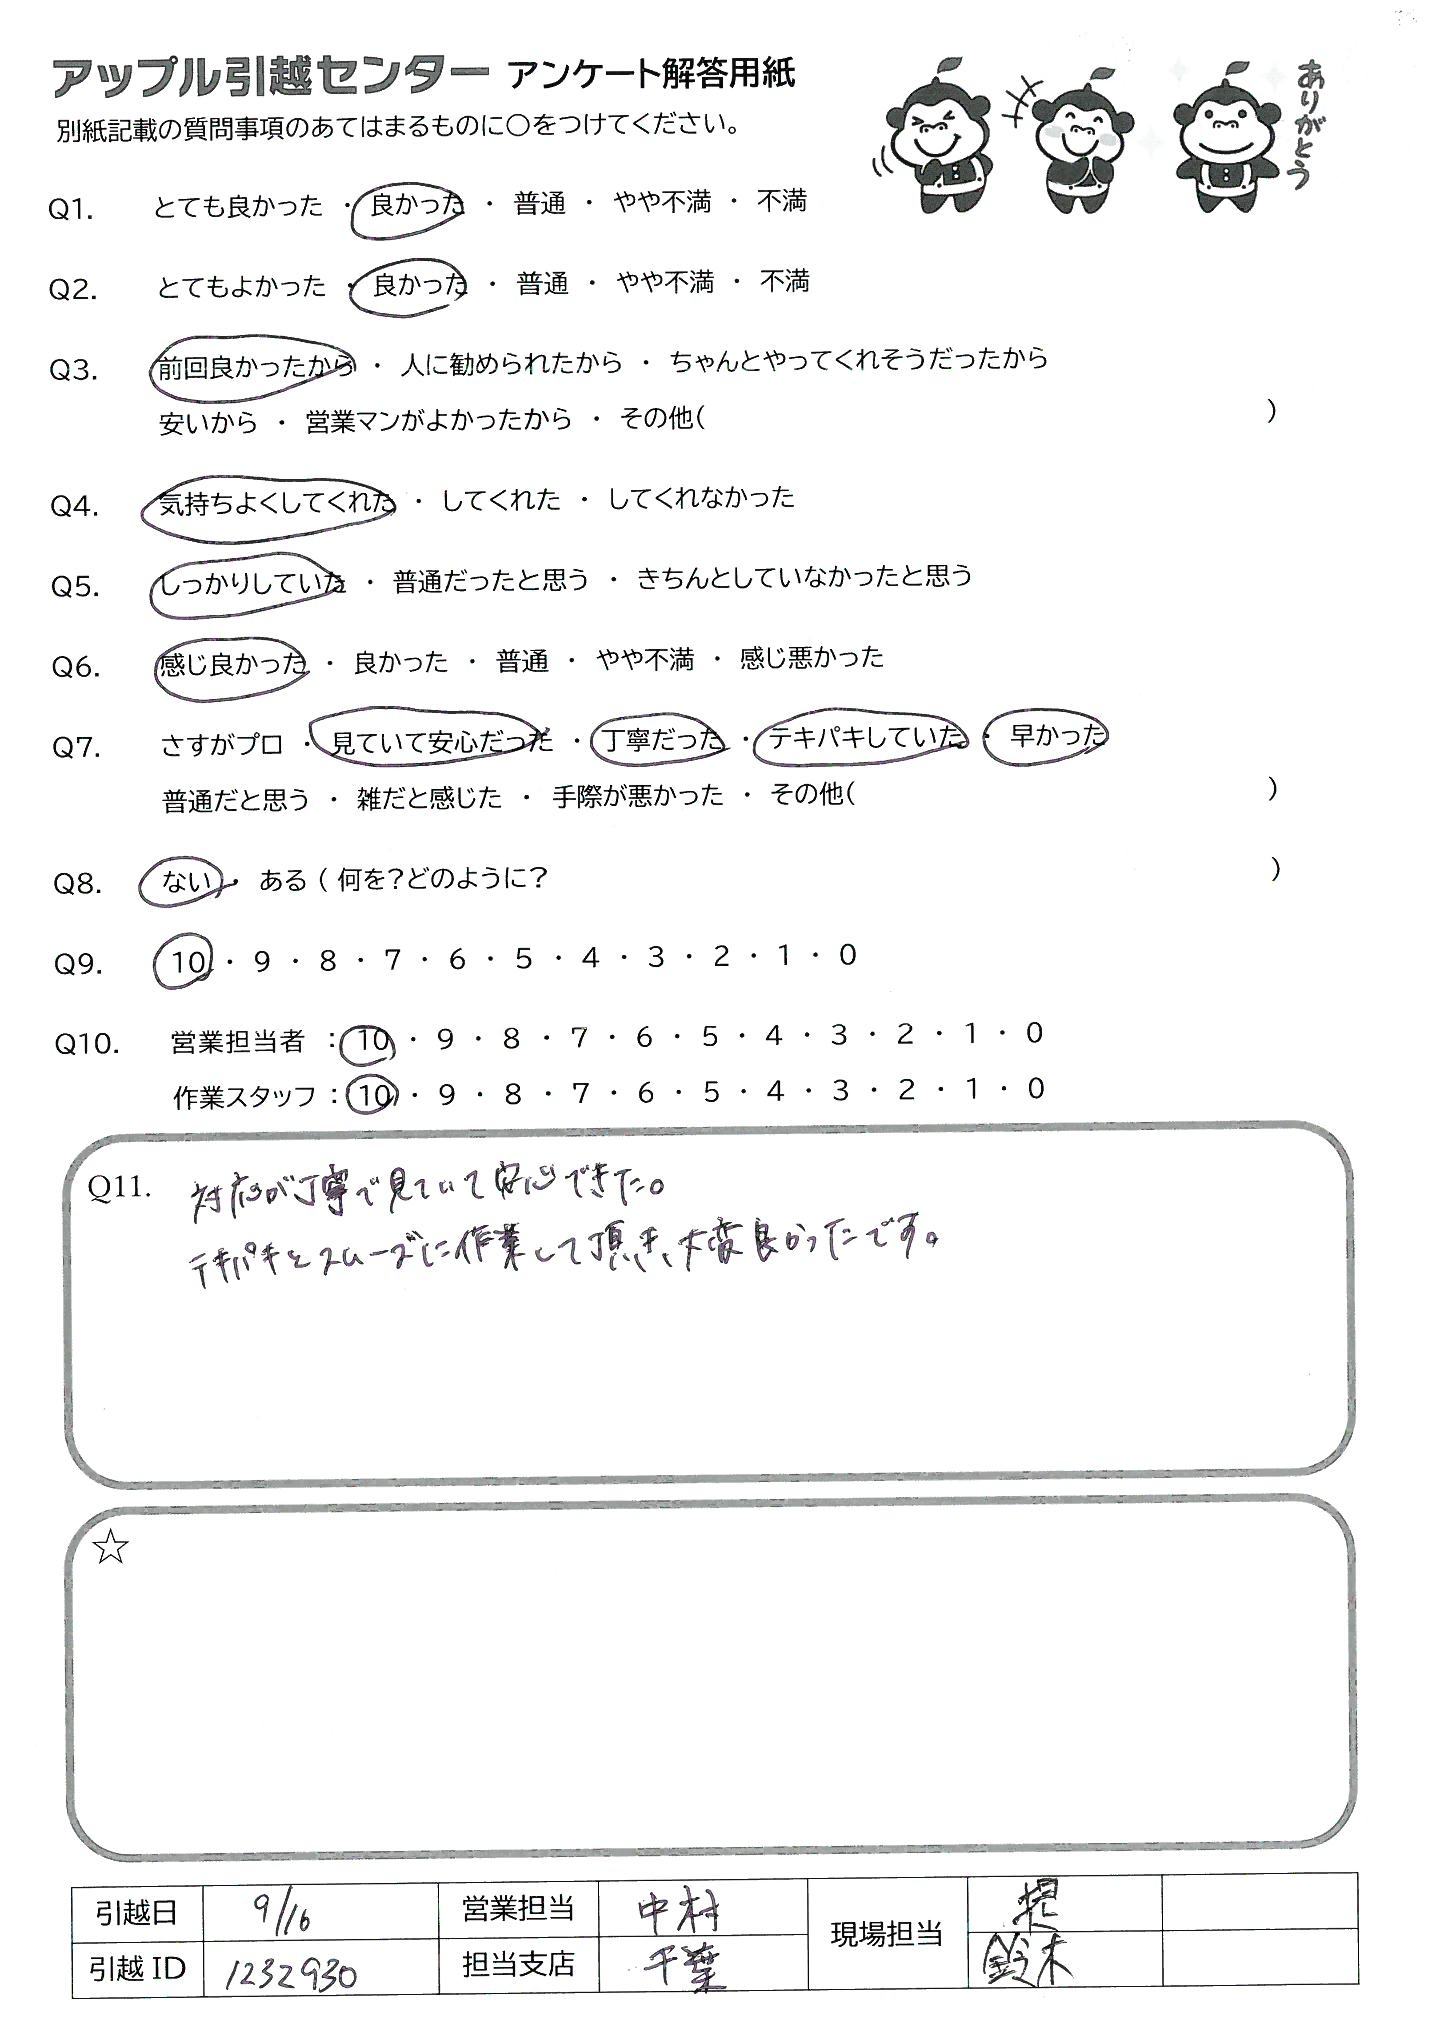 アップル引越センター アンケート解答用紙
別紙記載の質問事項のあてはまるものに○をつけてください。
ありがとう
Q1. とても良かった ・ 良かった ・ 普通 ・ やや不満 ・ 不満
Q2. とてもよかった ・ 良かった ・ 普通 ・ やや不満 ・ 不満
Q3. 前回良かったから ・ 人に勧められたから ・ ちゃんとやってくれそうだったから
安いから ・ 営業マンがよかったから ・ その他( )
Q4. 気持ちよくしてくれた ・ してくれた ・ してくれなかった
Q5. しっかりしていた ・ 普通だったと思う ・ きちんとしていなかったと思う
Q6. 感じ良かった ・ 良かった ・ 普通 ・ やや不満 ・ 感じ悪かった
Q7. さすがプロ ・ 見ていて安心だった ・ 丁寧だった ・ テキパキしていた ・ 早かった
普通だと思う ・ 雑だと感じた ・ 手際が悪かった ・ その他( )
Q8. ない ・ ある ( 何を?どのように? )
Q9. 10 ・ 9 ・ 8 ・ 7 ・ 6 ・ 5 ・ 4 ・ 3 ・ 2 ・ 1 ・ 0
Q10. 営業担当者 : 10 ・ 9 ・ 8 ・ 7 ・ 6 ・ 5 ・ 4 ・ 3 ・ 2 ・ 1 ・ 0
作業スタッフ : 10 ・ 9 ・ 8 ・ 7 ・ 6 ・ 5 ・ 4 ・ 3 ・ 2 ・ 1 ・ 0
Q11. 対応が丁寧で見ていて安心できた。
テキパキとスムーズに作業して頂き、大変良かったです。
☆
引越日 9/16 営業担当 中村 現場担当
引越ID 1232930 担当支店 千葉 鈴木